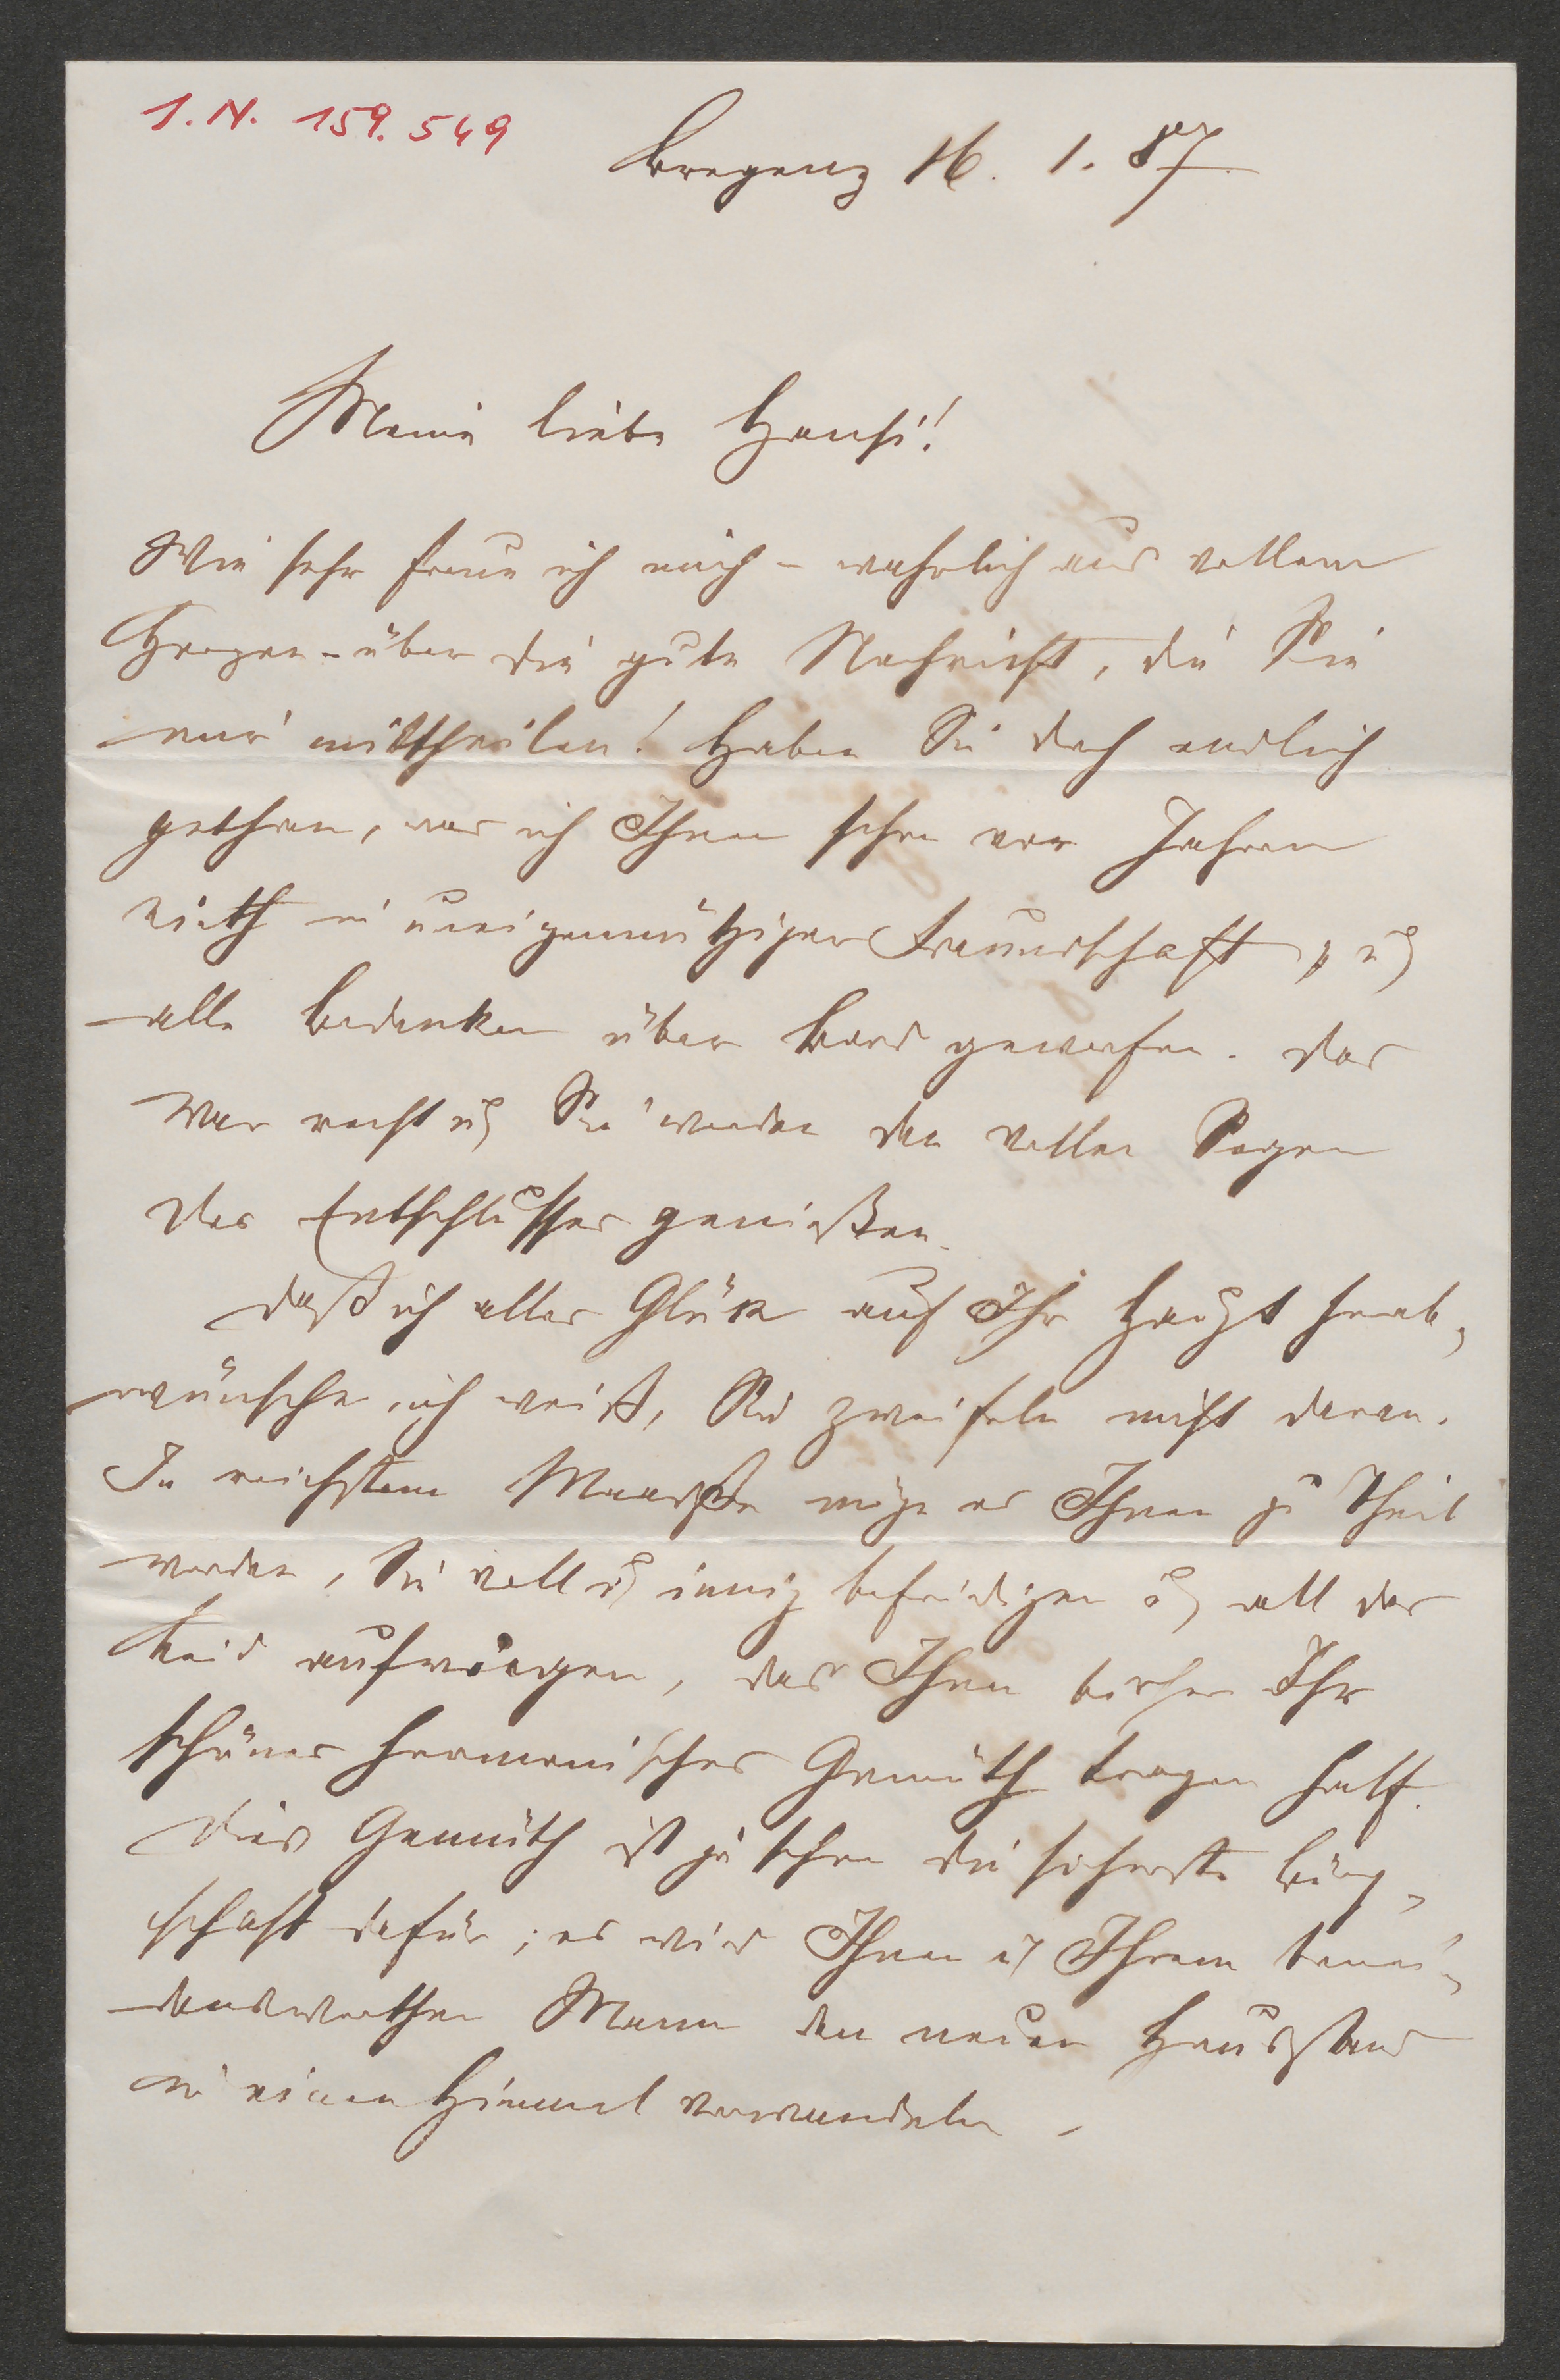 I.N. 159.549
Bregenz 16. 1. 87
Meine liebe Hansi!
Wie sehr freue ich mich – wahrlich aus vollem
Herzen – über die gute Nachricht, die Sie
mir mittheilen! Haben Sie doch endlich
gethan, was ich Ihnen schon vor Jahren
rieth in uneigennütziger Freundschaft, u
alle Bedenken über Bord geworfen. Das
war recht u Sie werden den vollen Segen
des Entschlusses genießen.
Daß ich alles Glük auf Ihr Haupt herab-
wünsche, ich weiß, Sie zweifeln nicht daran.
In reichstem Maaße möge es Ihnen zu Theil
werden, Sie voll u innig befriedigen u all das
Leid aufwiegen, das Ihnen bisher Ihr
schönes harmonisches Gemüth tragen half.
Dies Gemüth ist ja schon die sicherste Bürg-
schaft dafür; es wird Ihnen u Ihrem benei-
denswerthen Mann den neuen Hausstand
in einen Himmel verwandeln.